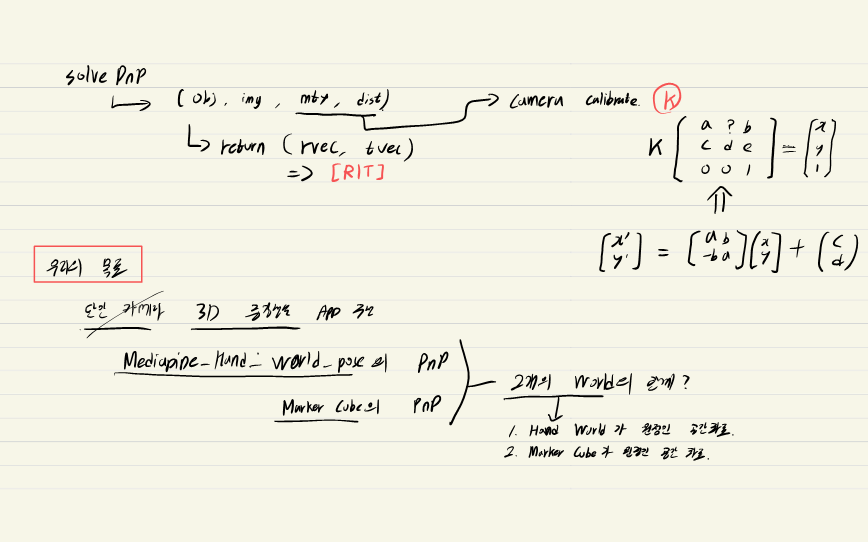 solve PnP
(obj, img, mtx, dist) → camera calibrate. K
return (rvec, tvec)
=> [R|T]
K [a ? b
c d e
0 0 1] = [x
y
1]
[x'
y'] = [a b
-b a][x
y] + (c
d)
우리의 목표
단일 카메라 3D 증강현실 APP 구현
Mediapipe_Hand_world_pose의 PnP
Marker Cube의 PnP
2개의 World의 관계?
1. Hand World가 원점인 공간좌표.
2. Marker Cube가 원점인 공간 좌표.